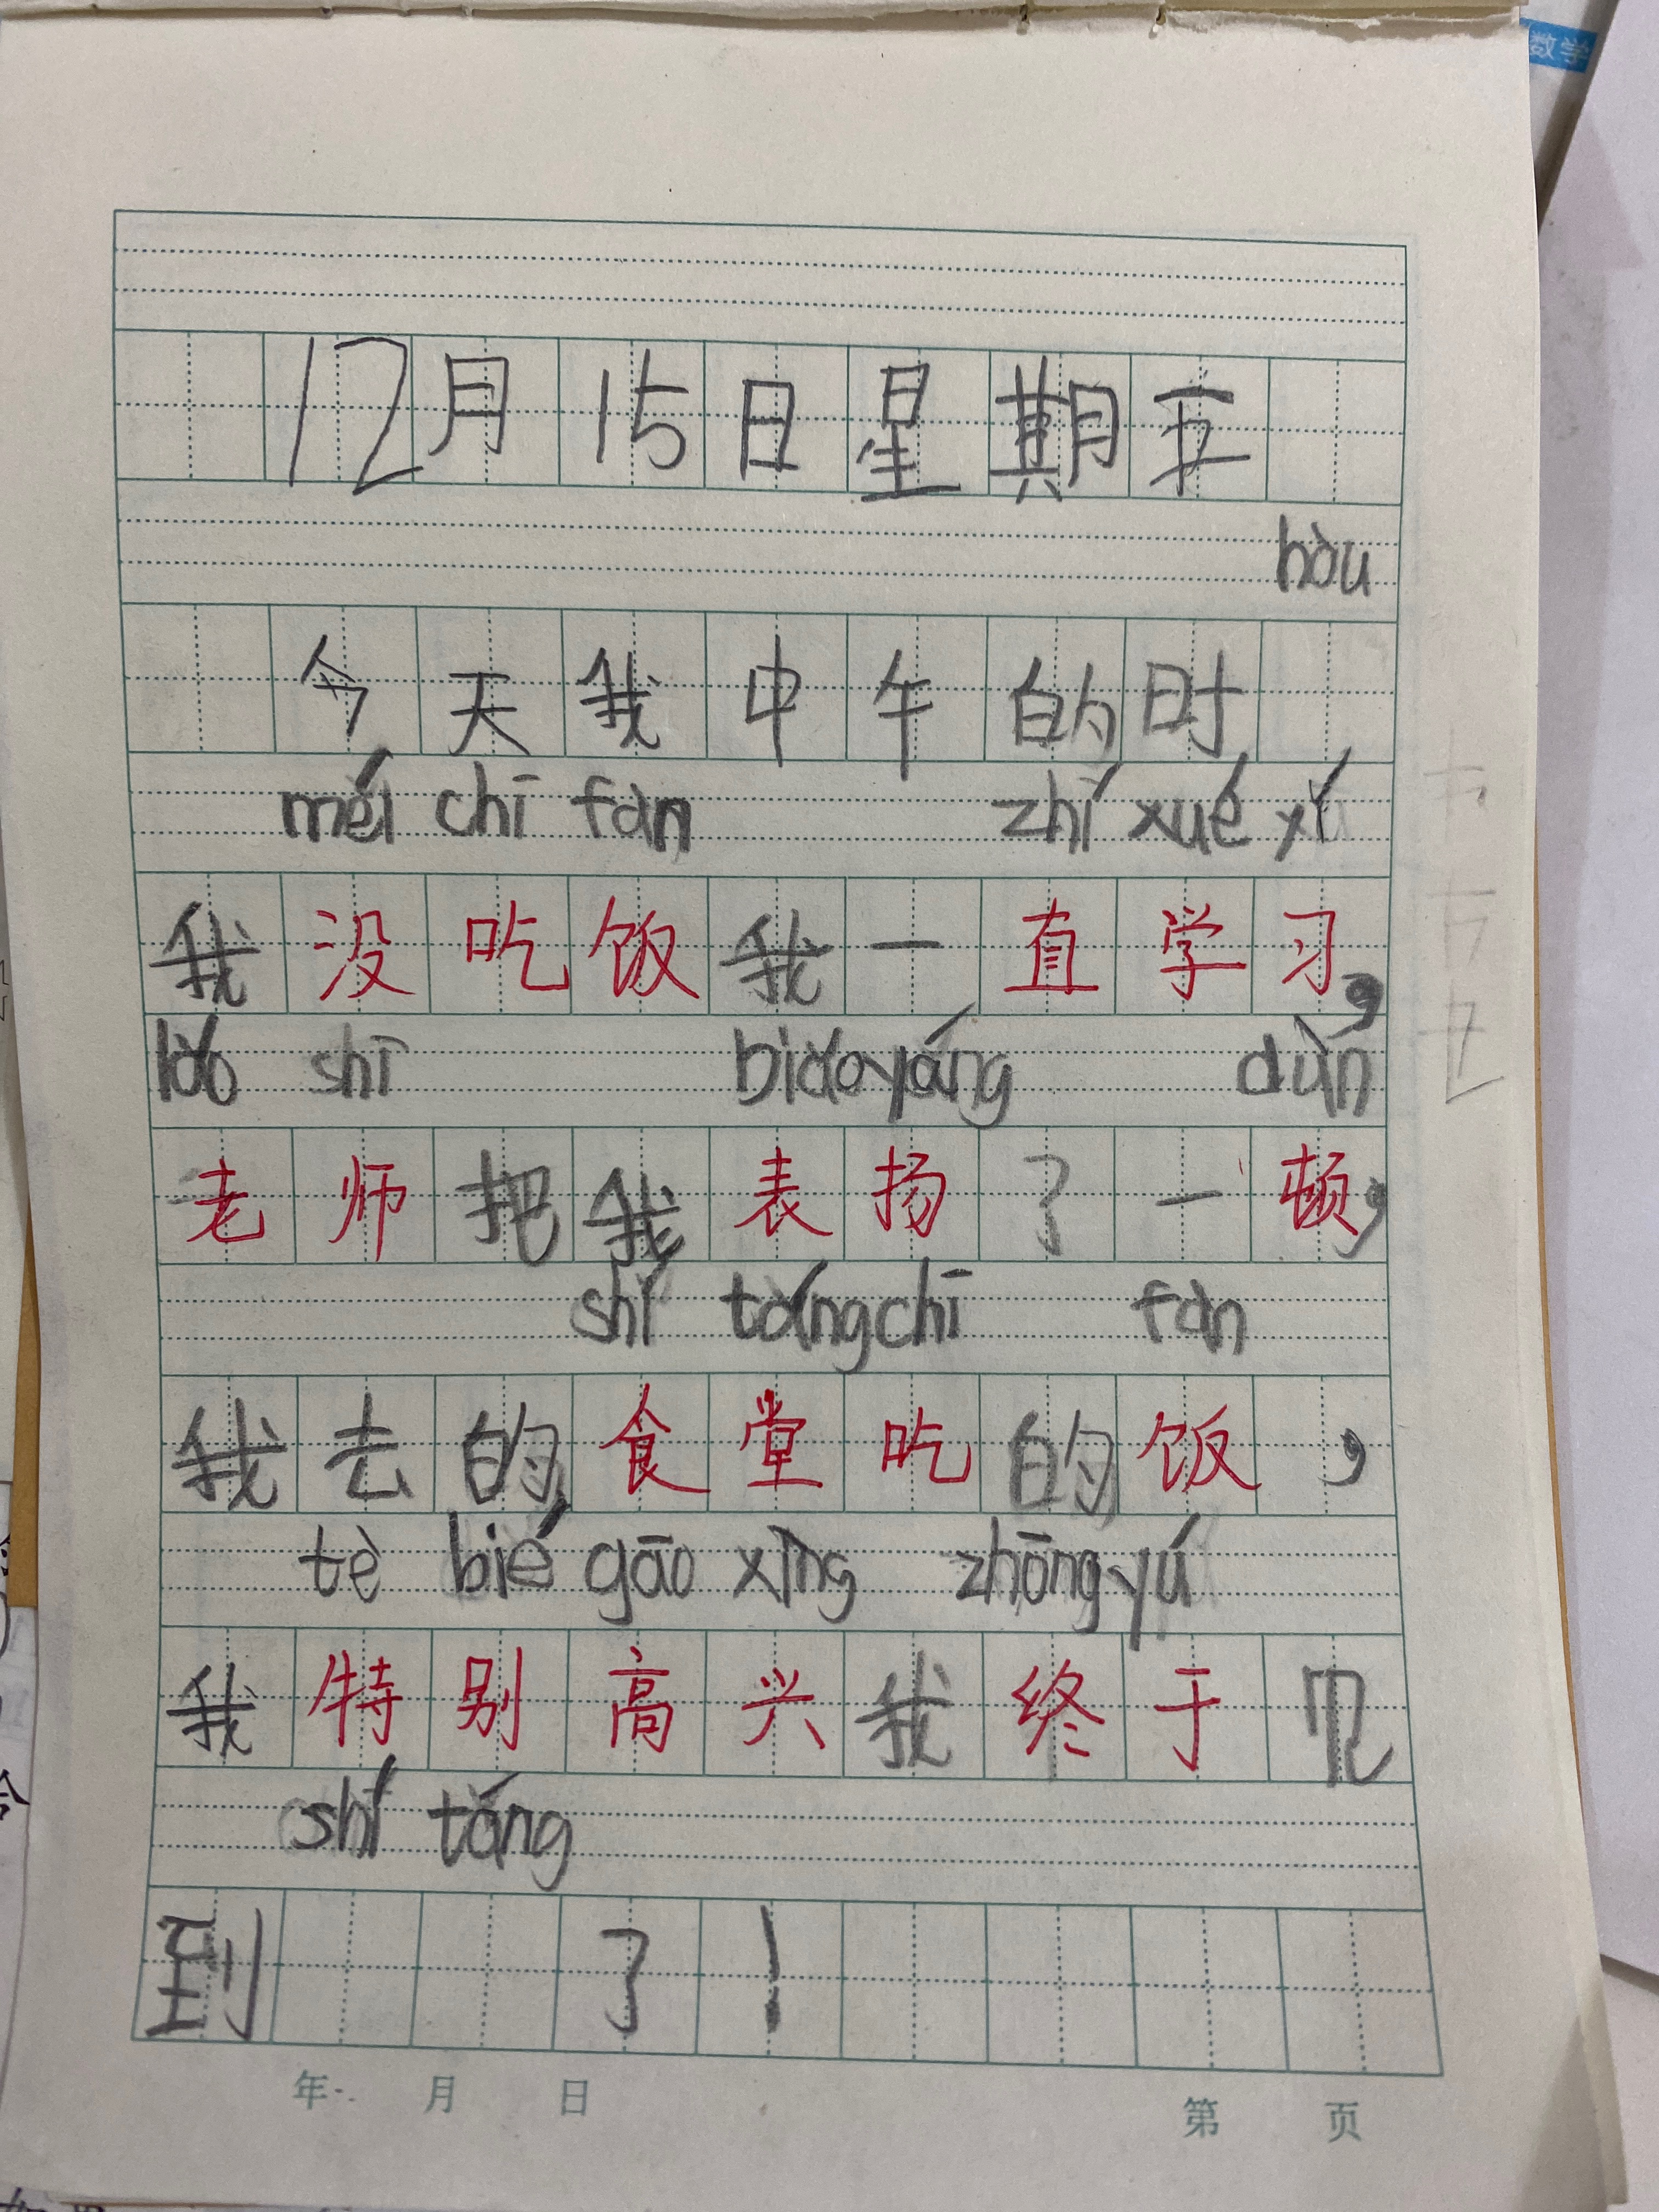 数学
12月15日星期五
hòu
今天我中午的时
méi chī fàn zhí xué xí
我没吃饭我一直学习,
lǎo shī biǎoyáng dùn
老师把我表扬了一顿,
shí tángchī fàn
我去的食堂吃的饭,
tè bié gāo xìng zhōngyú
我特别高兴我终于见
shí táng
到 了!
年 月 日 第 页